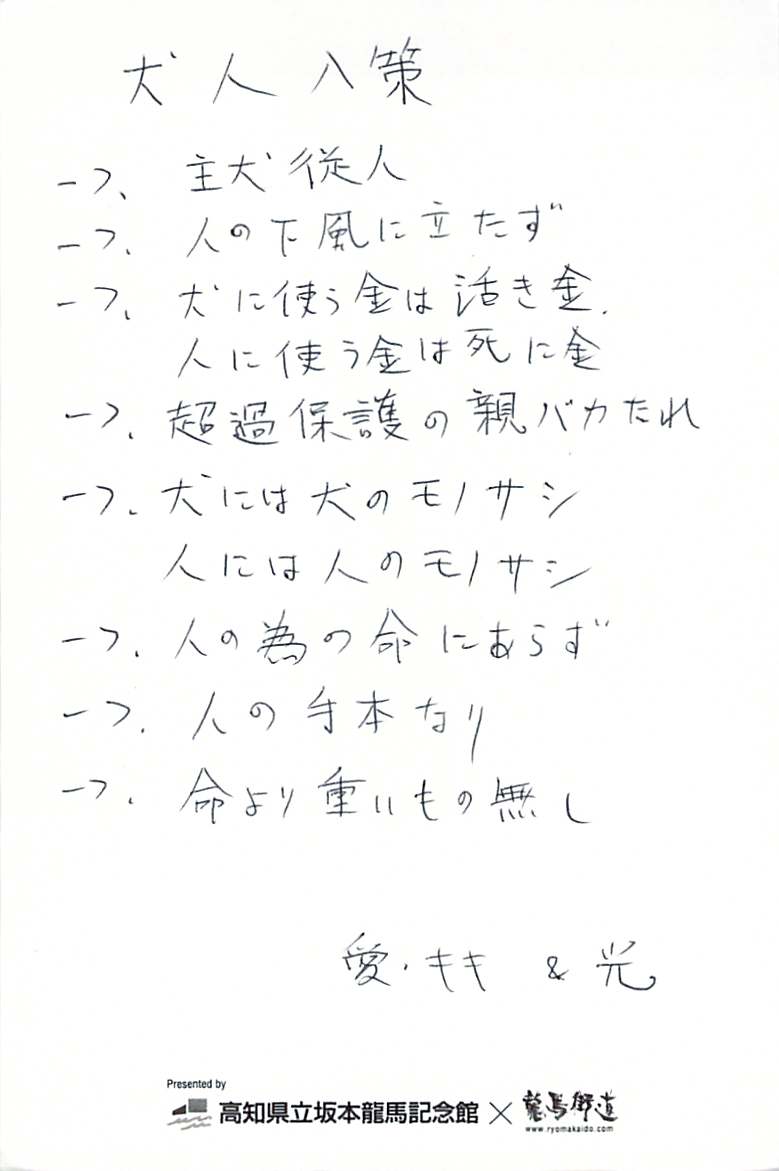 犬人八策
一つ、主犬従人
一つ、人の下風に立たず
一つ、犬に使う金は活き金、
人に使う金は死に金
一つ、超過保護の親バカたれ
一つ、犬には犬のモノサシ
人には人のモノサシ
一つ、人の為の命にあらず
一つ、人の手本なり
一つ、命より重いもの無し
愛・キキ & 光
Presented by
高知県立坂本龍馬記念館×龍馬街道
www.ryomakaido.com